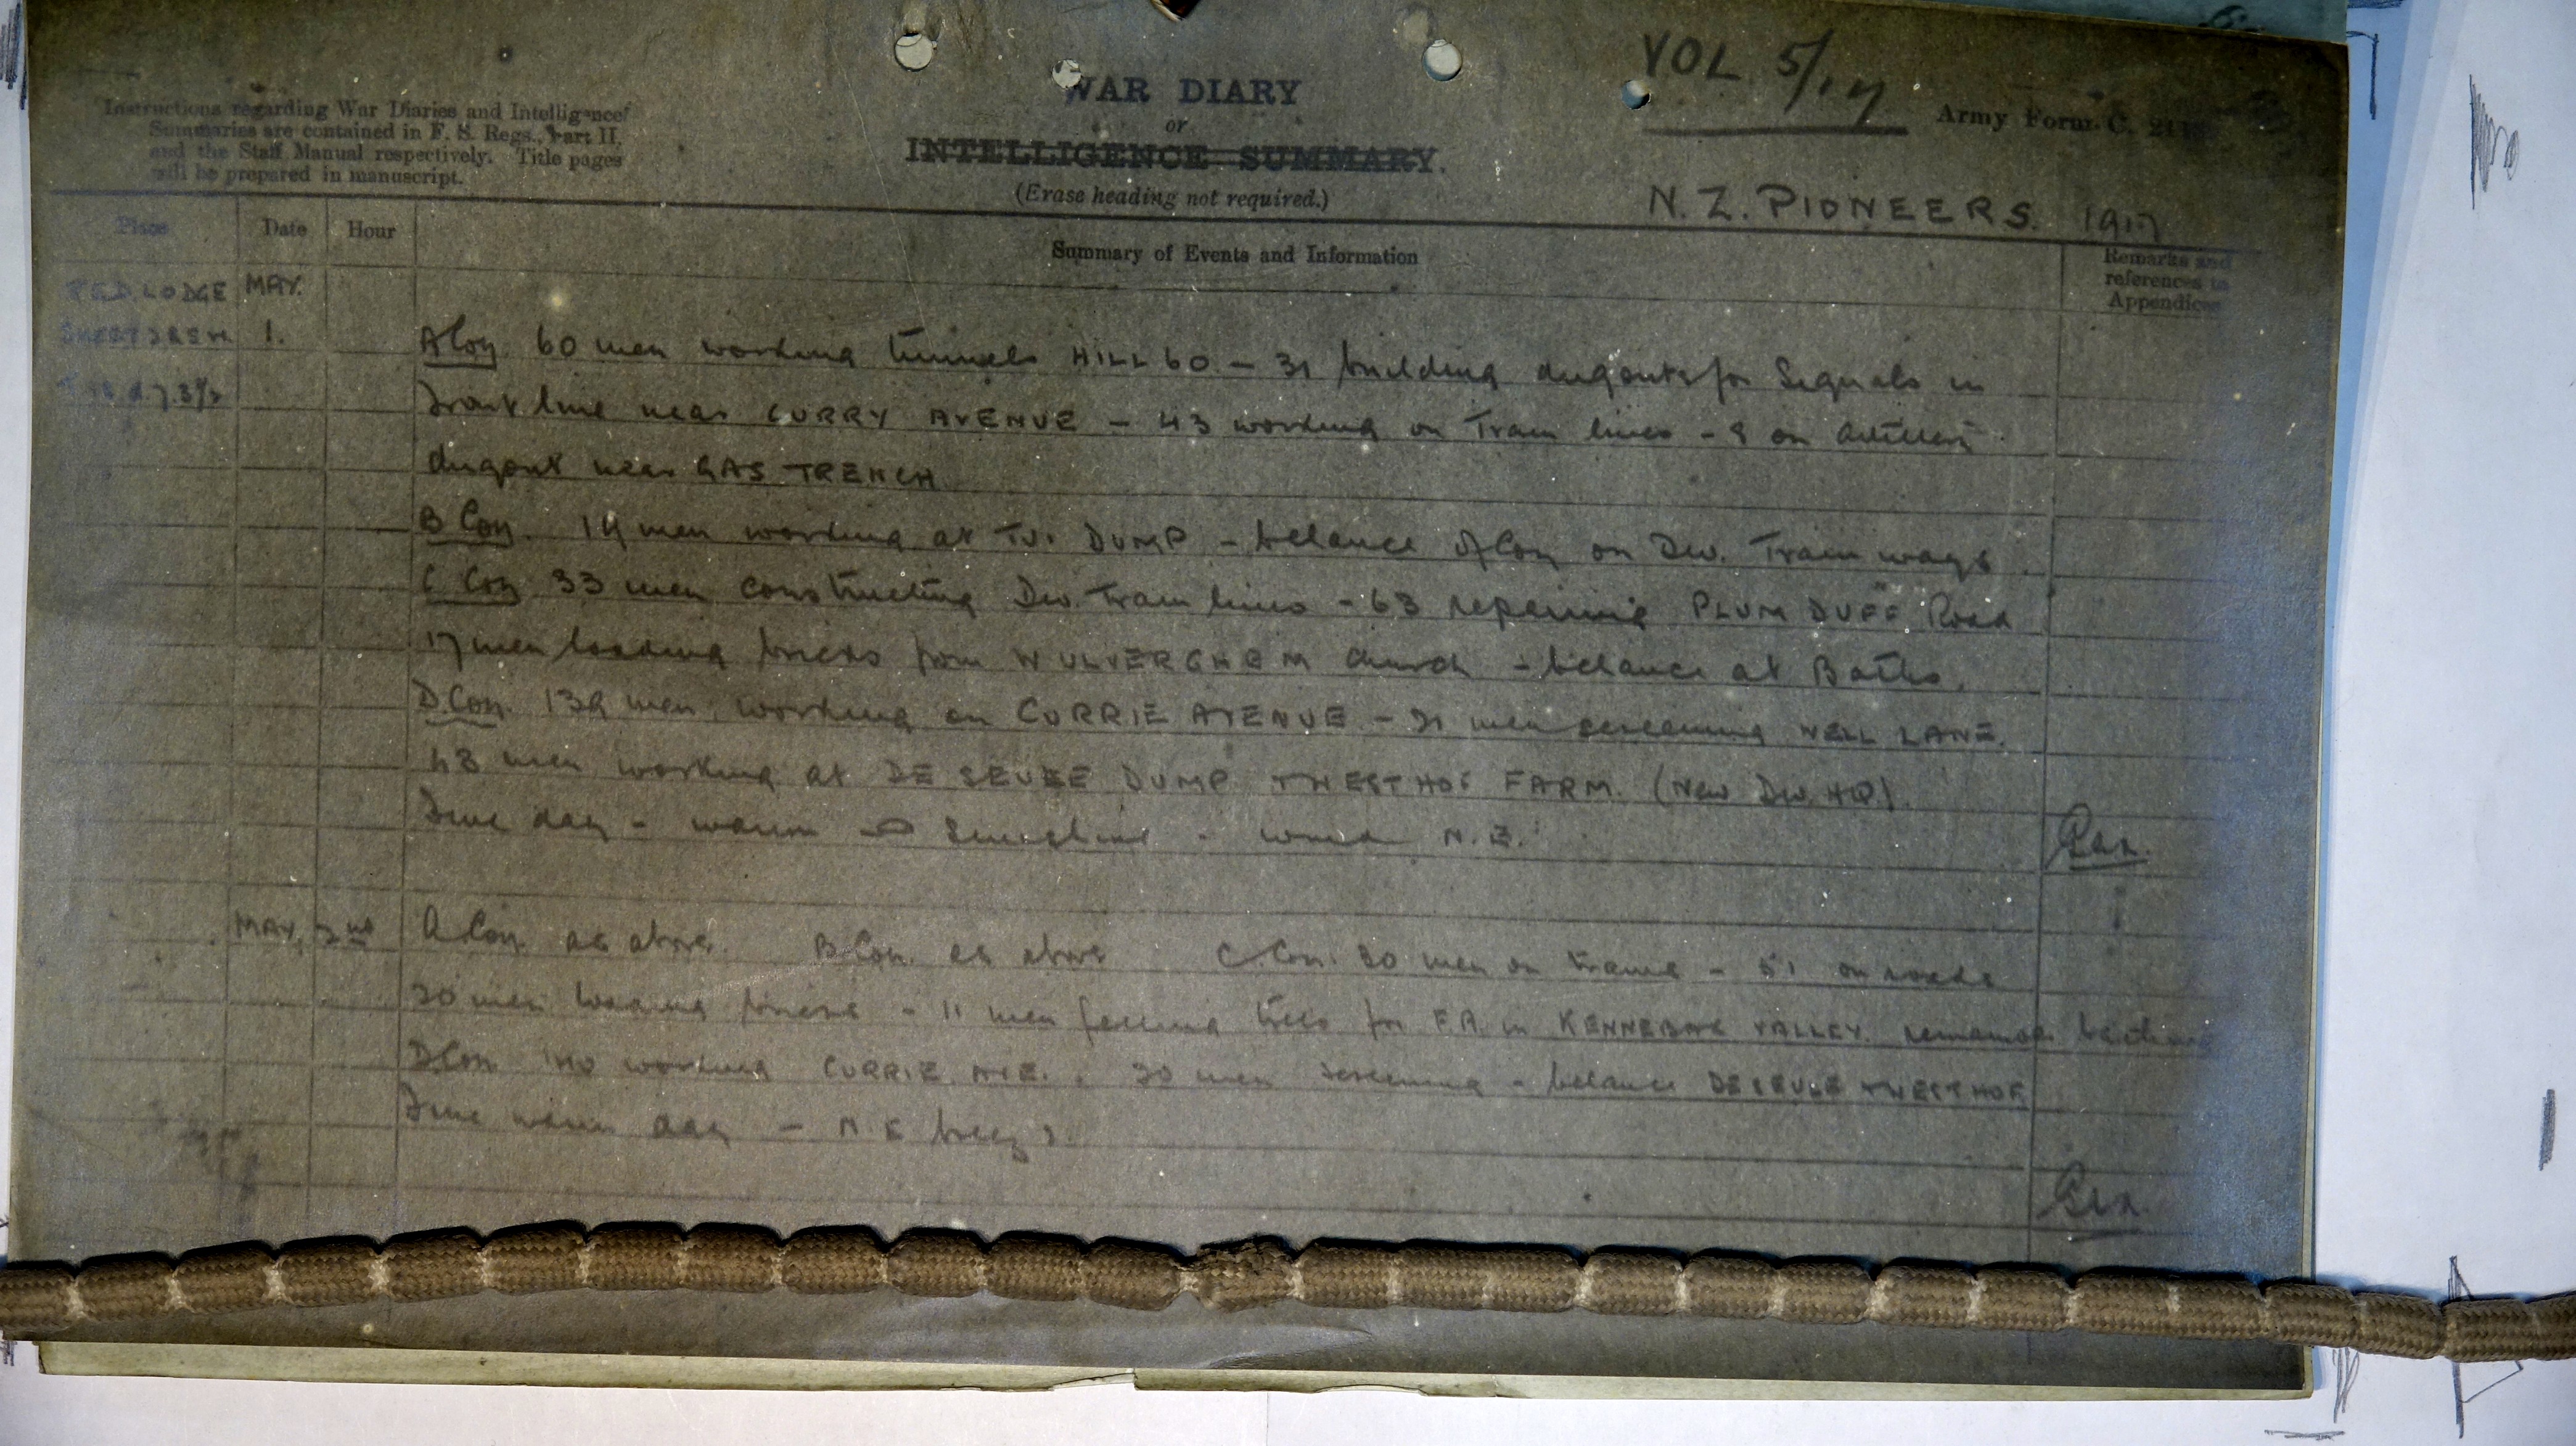 VOL 5/17
WAR DIARY
or
INTELLIGENCE SUMMARY.
(Erase heading not required.)
Army Form C.
Instructions regarding War Diaries and Intelligence
Summaries are contained in F. S. Regs., Part II,
and the Staff Manual respectively. Title pages
will be prepared in manuscript.
N. Z. PIONEERS. 1917
Place
Date
Hour
Summary of Events and Information
Remarks and
references to
Appendices
RED LODGE
MAY.
1.
A Coy. 60 men working tunnels HILL 60 – 31 building dugouts for Signals in
front line near CURRY AVENUE – 43 working on Tram lines – 9 on Artillery
dugout near GAS TRENCH
B Coy. 14 men working at DUMP – balance of Coy on Div. Tramways.
C Coy 33 men constructing Div. Tram lines – 63 repairing PLUM DUFF Road
17 men loading bricks from WULVERGHEM church – balance at Baths.
D. Coy. 139 men working on CURRIE AVENUE – 21 men screening NELL LANE.
43 men working at DE SEULE DUMP WESTHOF FARM. (New Div. HQ).
Fine day – warm sunshine – wind N.E.
MAY, 2nd
A. Coy. as above. B Coy. as above C. Coy. 30 men on trams – 51 on roads
20 men loading bricks – 11 men felling trees for F.A. in KENNEBAK VALLEY. remainder baths
D. Coy 140 working CURRIE AVE. 20 men screening – balance DE SEULE WESTHOF.
Fine warm day – N E breeze.